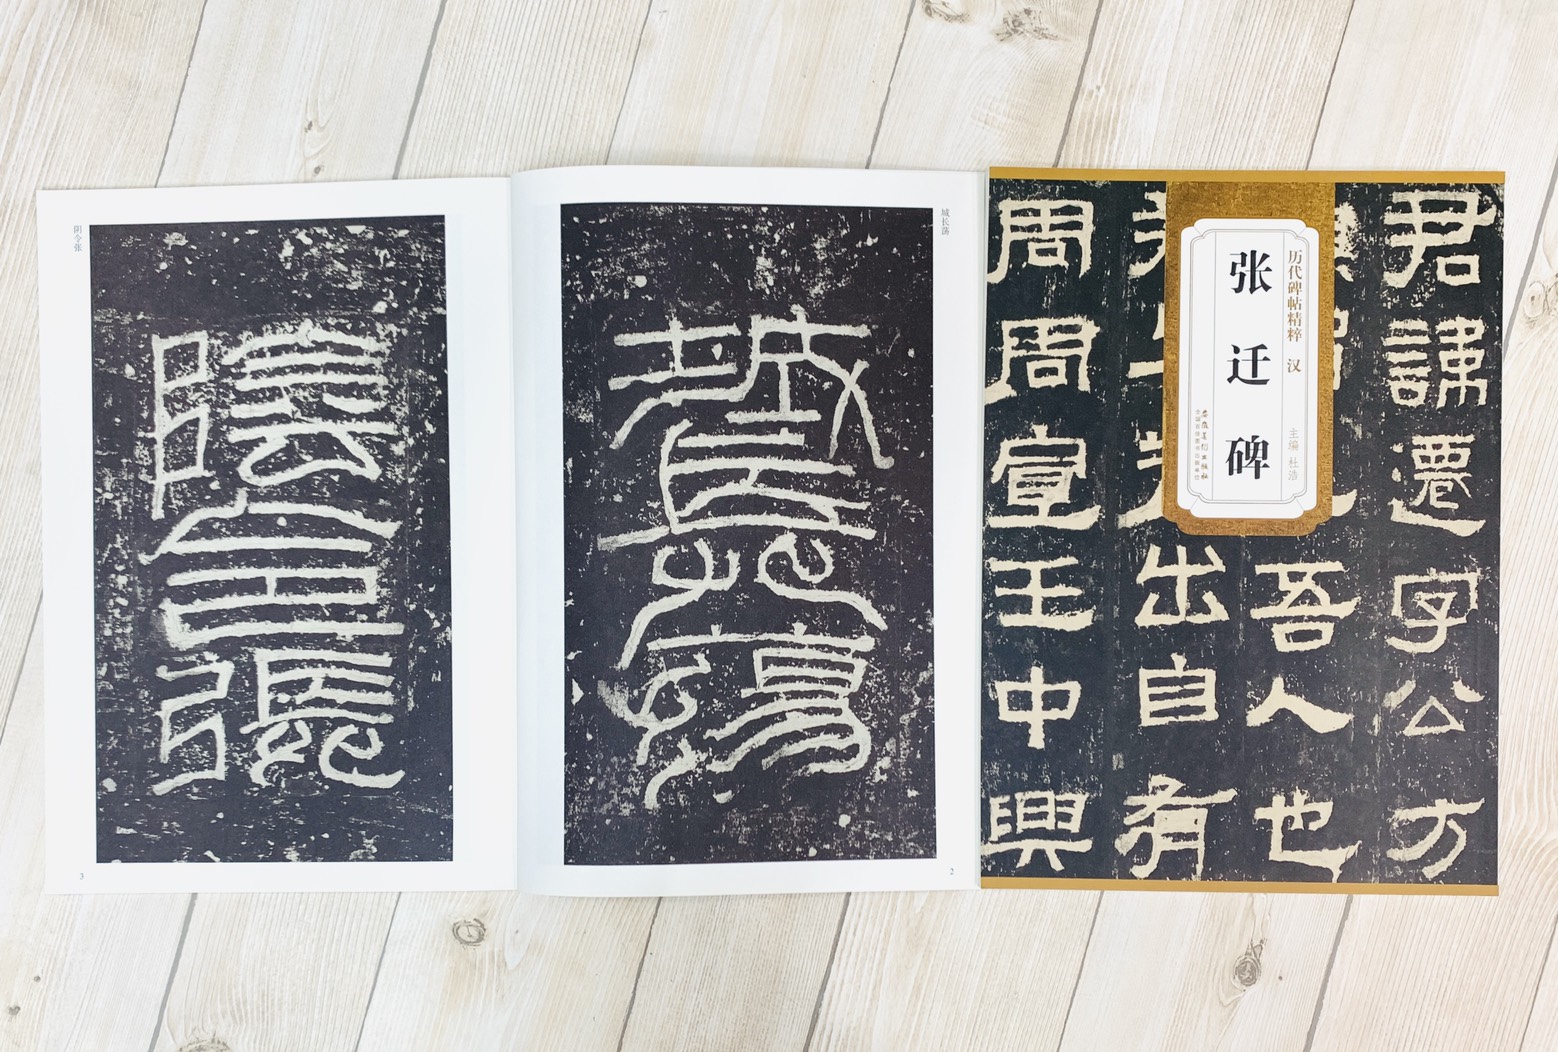 君諱遷字公方
吾人也
出自有
周周宣王中興
历代碑帖精粹 汉
张迁碑
主编 杜浩
安徽美术出版社
城长荡
城長蕩
2
阴令张
陰令張
3